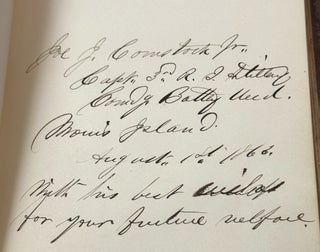 Joe J. Comstock Jr.
Capt. 3rd R. I. Artillery
Comdg Batty
Morris Island.
August 1st 186
With his best wishes
for your future welfare.